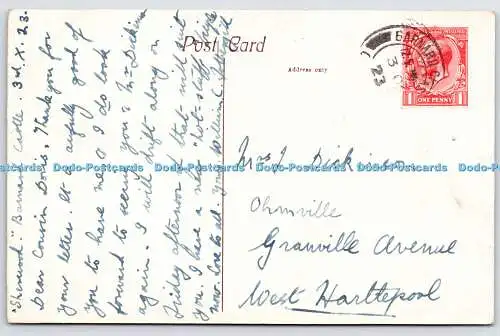 Post Card
Address only
BARNARD
3 OC
23
ONE PENNY
1 1
"Sherwood" Barnard Castle. 3rd. X. 23.
Dear Cousin Doris, Thank you for
your letter. It awfully good of
you to have me & I do look
forward to seeing you & Mr Dickinson
again. I will drift along on
Friday afternoon if that will suit
you. I have a new "hot-stuff"
now. Love to all. Yours William
Mrs J Dickinson
Ohmville
Granville Avenue
West Hartlepool
Dodo-Postcards Dodo-Postcards Dodo-Postcards Dodo-Postcards Dodo-Postcards Dodo-Postcards